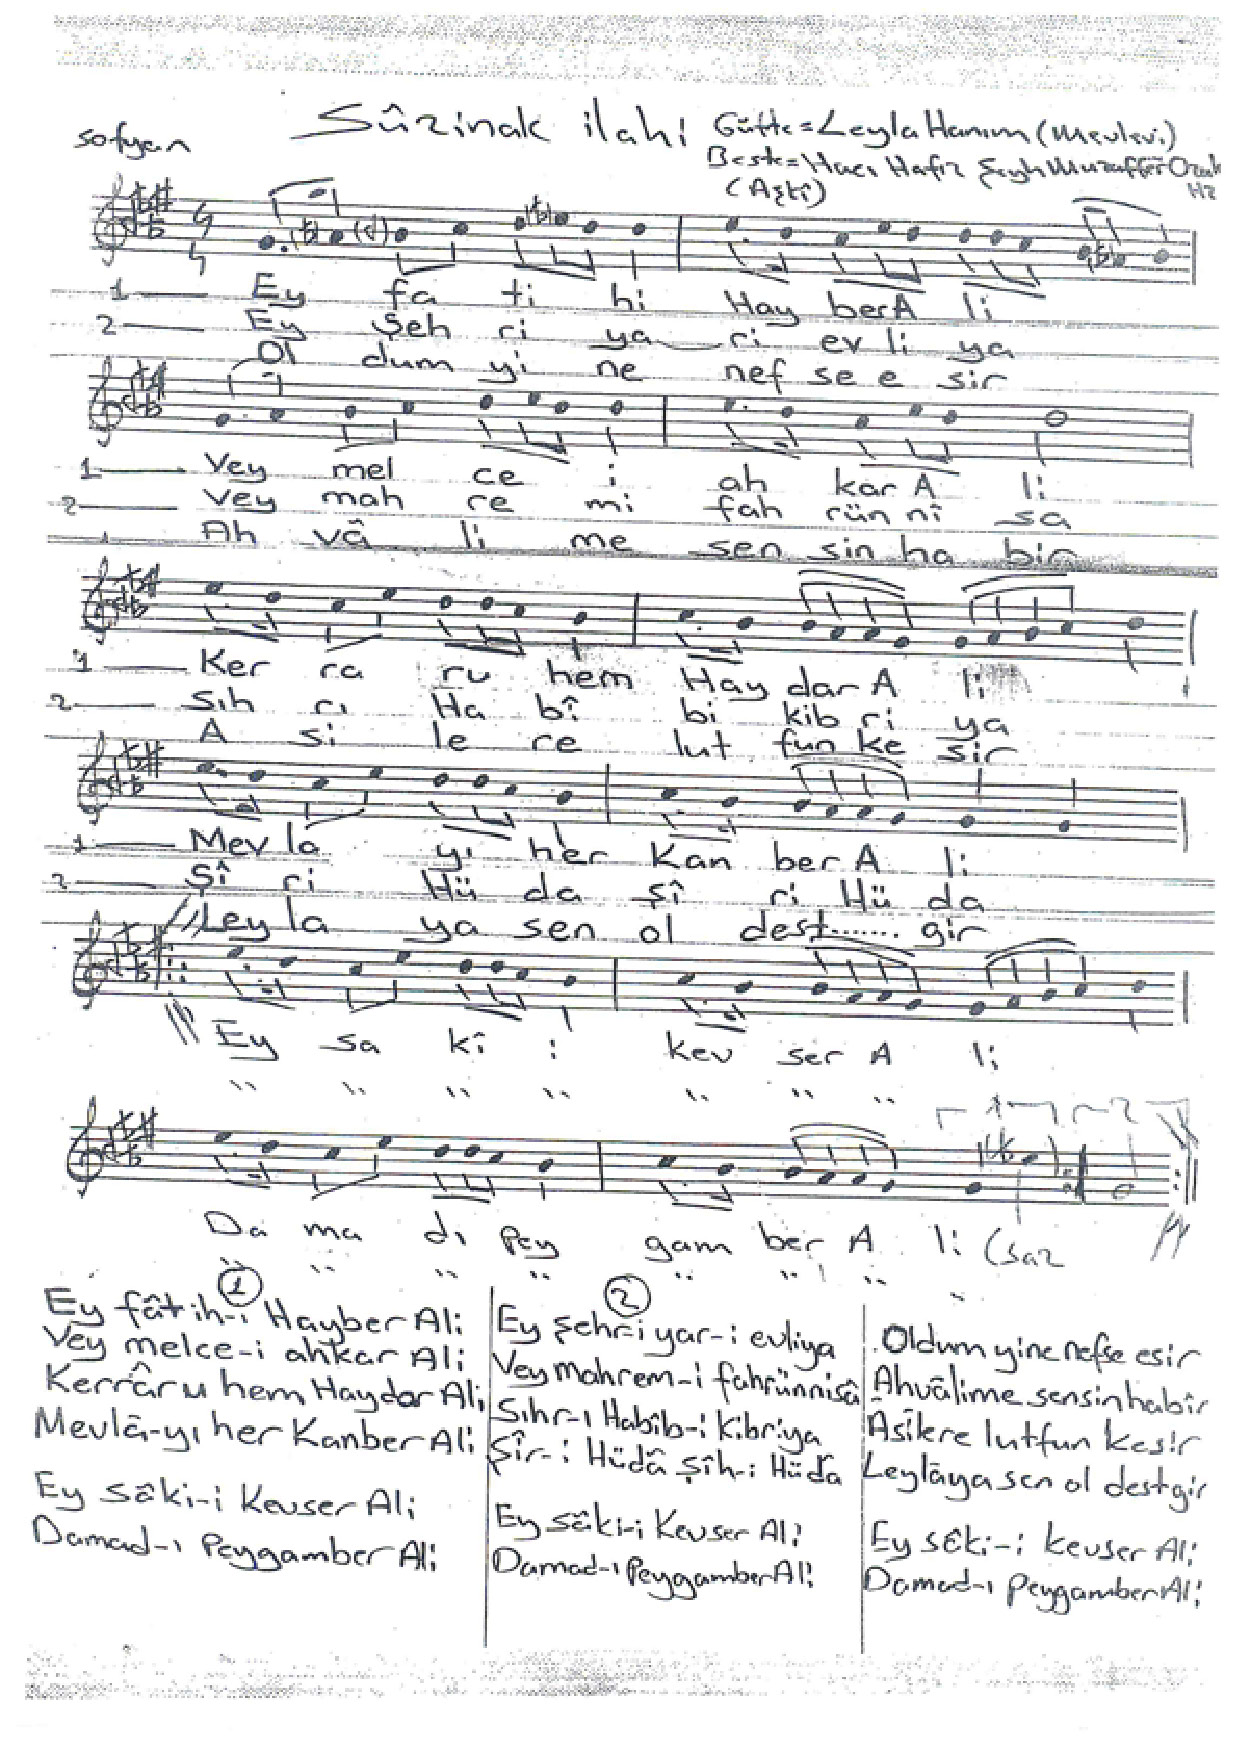 Sûzinak ilahi
Güfte=Leyla Hanım (Mevlevi)
sofyan
Beste=Hacı Hafız Şeyh Muzaffer Ozak
(Aşkî) Hz
1 Ey fa ti hi Hay ber A li
2 Ey Şeh ri ya ri ev li ya
Ol dum yi ne nef se e sir
1 Vey mel ce i ah kar A li
2 Vey mah re mi fah rün nî sa
Ah vâ li me sen sin ha bir
1 Ker ra ru hem Hay dar A li
2 Sıh rı Ha bî bi kib ri ya
A si le re lut fun ke sir
1 Mev la yı her Kan ber A li
2 Şî ri Hü da şî ri Hü da
Ley la ya sen ol dest....... gir
Ey sa kî i kev ser A li
" " " " " " "
1 2
Da ma dı Pey gam ber A li (saz
" " " " " " "
1
Ey fâtih-i Hayber Ali
Vey melce-i ahkar Ali
Kerrâru hem Haydar Ali
Mevlâ-yı her Kanber Ali
Ey sâki-i Kevser Ali
Damad-ı Peygamber Ali
2
Ey şehr-i yar-i evliya
Vey mahrem-i fahrünnisâ
Sıhr-ı Habîb-i Kibriya
Şîr-i Hüdâ şîh-i Hüda
Ey sâki-i Kevser Ali
Damad-ı Peygamber Ali
Oldum yine nefse esir
Ahvâlime sensin habîr
Âsilere lutfun kesir
Leylâya sen ol destgir
Ey sâki-i kevser Ali
Damad-ı Peygamber Ali